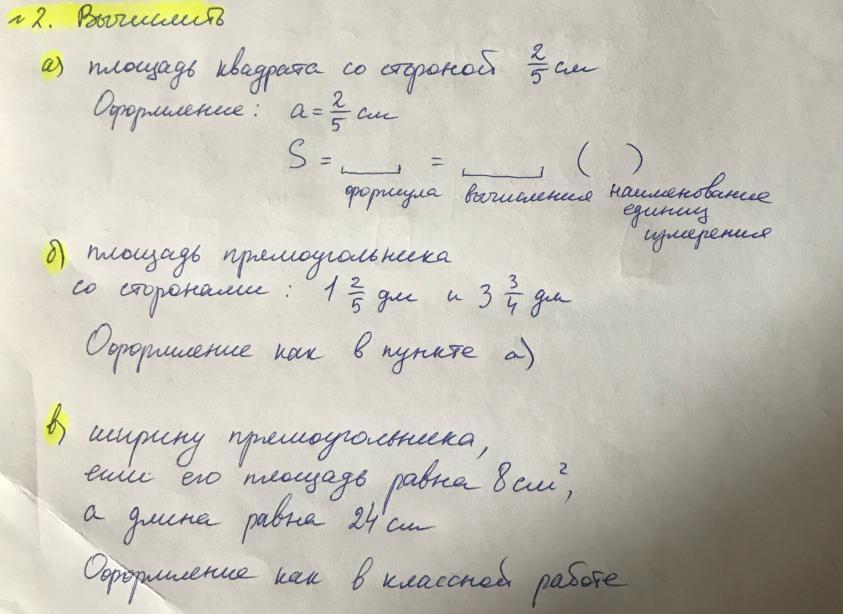 №2. Вычислить
а) площадь квадрата со стороной 2/5 см
Оформление: a = 2/5 см
S = ___ = ___ ( )
формула вычисления наименование
единиц
измерения
б) площадь прямоугольника
со сторонами: 1 2/5 дм и 3 3/4 дм
Оформление как в пункте а)
в) ширину прямоугольника,
если его площадь равна 8 см²,
а длина равна 24 см
Оформление как в классной работе